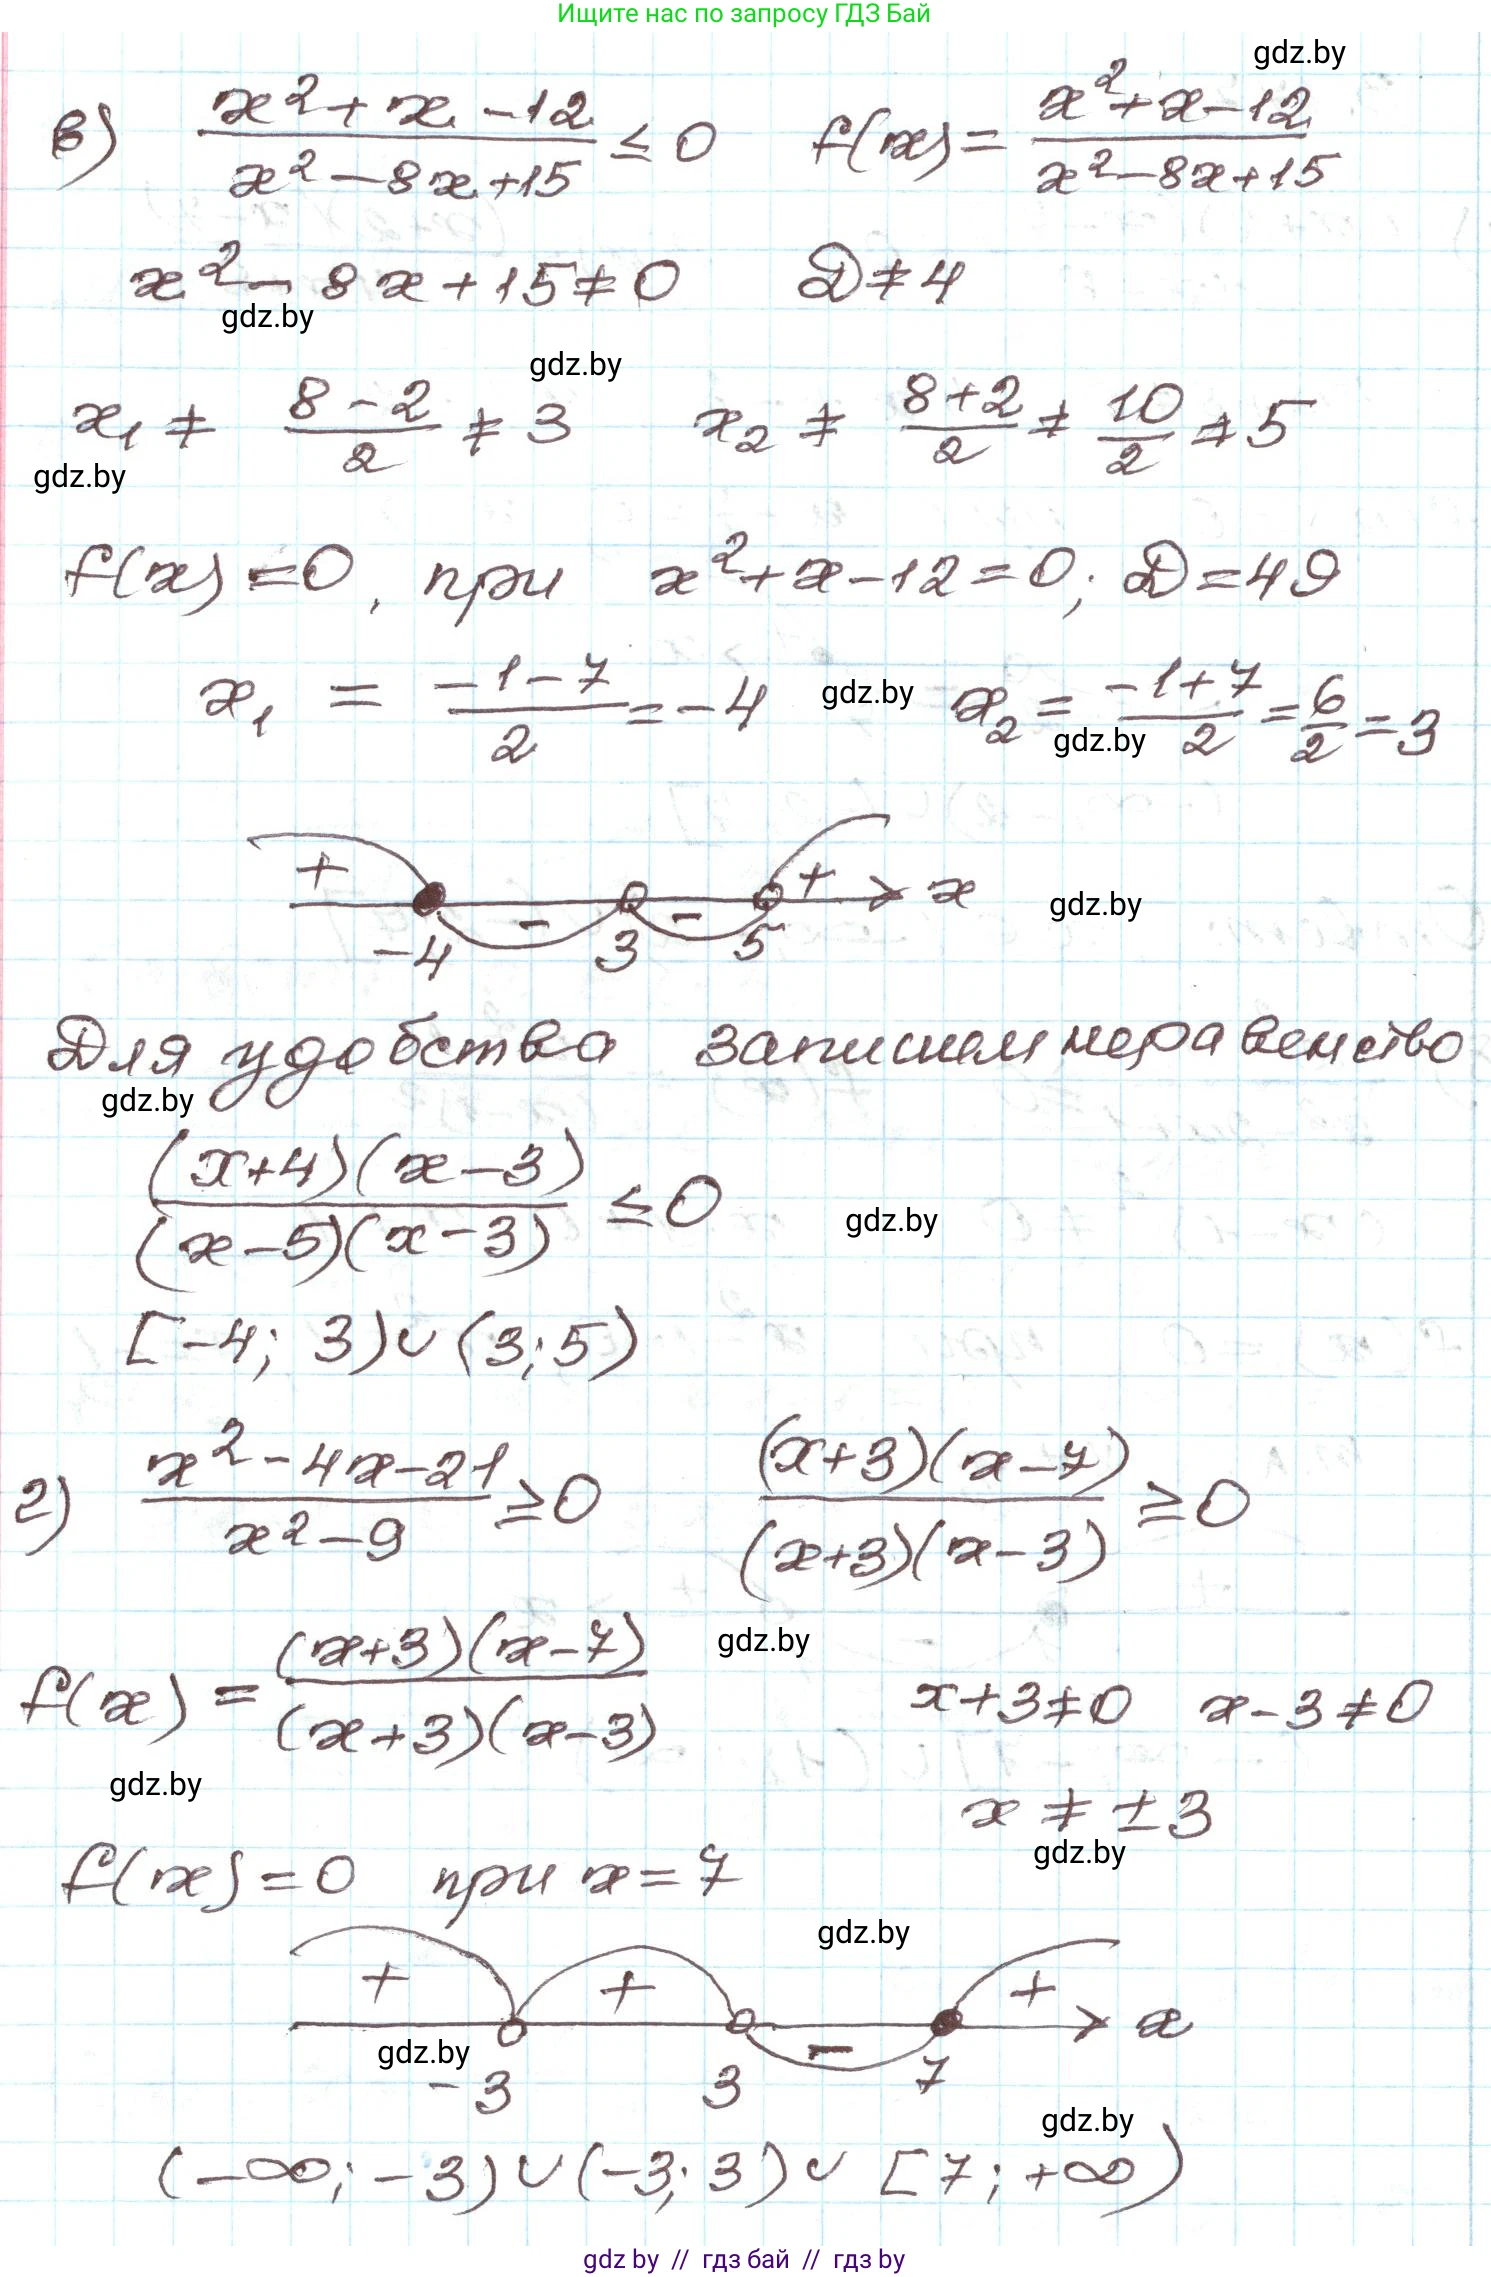 Ищите нас по запросу ГДЗ Бай
gdz.by
в) (x² + x - 12)/(x² - 8x + 15) ≤ 0 f(x) = (x² + x - 12)/(x² - 8x + 15)
x² - 8x + 15 ≠ 0 D ≠ 4
gdz.by
gdz.by
x₁ ≠ (8 - 2)/2 ≠ 3 x₂ ≠ (8 + 2)/2 ≠ 10/2 ≠ 5
gdz.by
f(x) = 0, при x² + x - 12 = 0; D = 49
x₁ = (-1 - 7)/2 = -4 gdz.by x₂ = (-1 + 7)/2 = 6/2 = 3
gdz.by
+ - - + x
gdz.by
-4 3 5
Для удобства запишем неравенство
gdz.by
((x+4)(x-3))/((x-5)(x-3)) ≤ 0
gdz.by
[-4; 3) ∪ (3; 5)
г) (x² - 4x - 21)/(x² - 9) ≥ 0 ((x+3)(x-7))/((x+3)(x-3)) ≥ 0
gdz.by
f(x) = ((x+3)(x-7))/((x+3)(x-3)) x+3 ≠ 0 x-3 ≠ 0
gdz.by
x ≠ ±3
gdz.by
f(x) = 0 при x = 7
gdz.by
+ + - + x
gdz.by
-3 3 7
gdz.by
(-∞; -3) ∪ (-3; 3) ∪ [7; +∞)
gdz by // гдз бай // гдз by